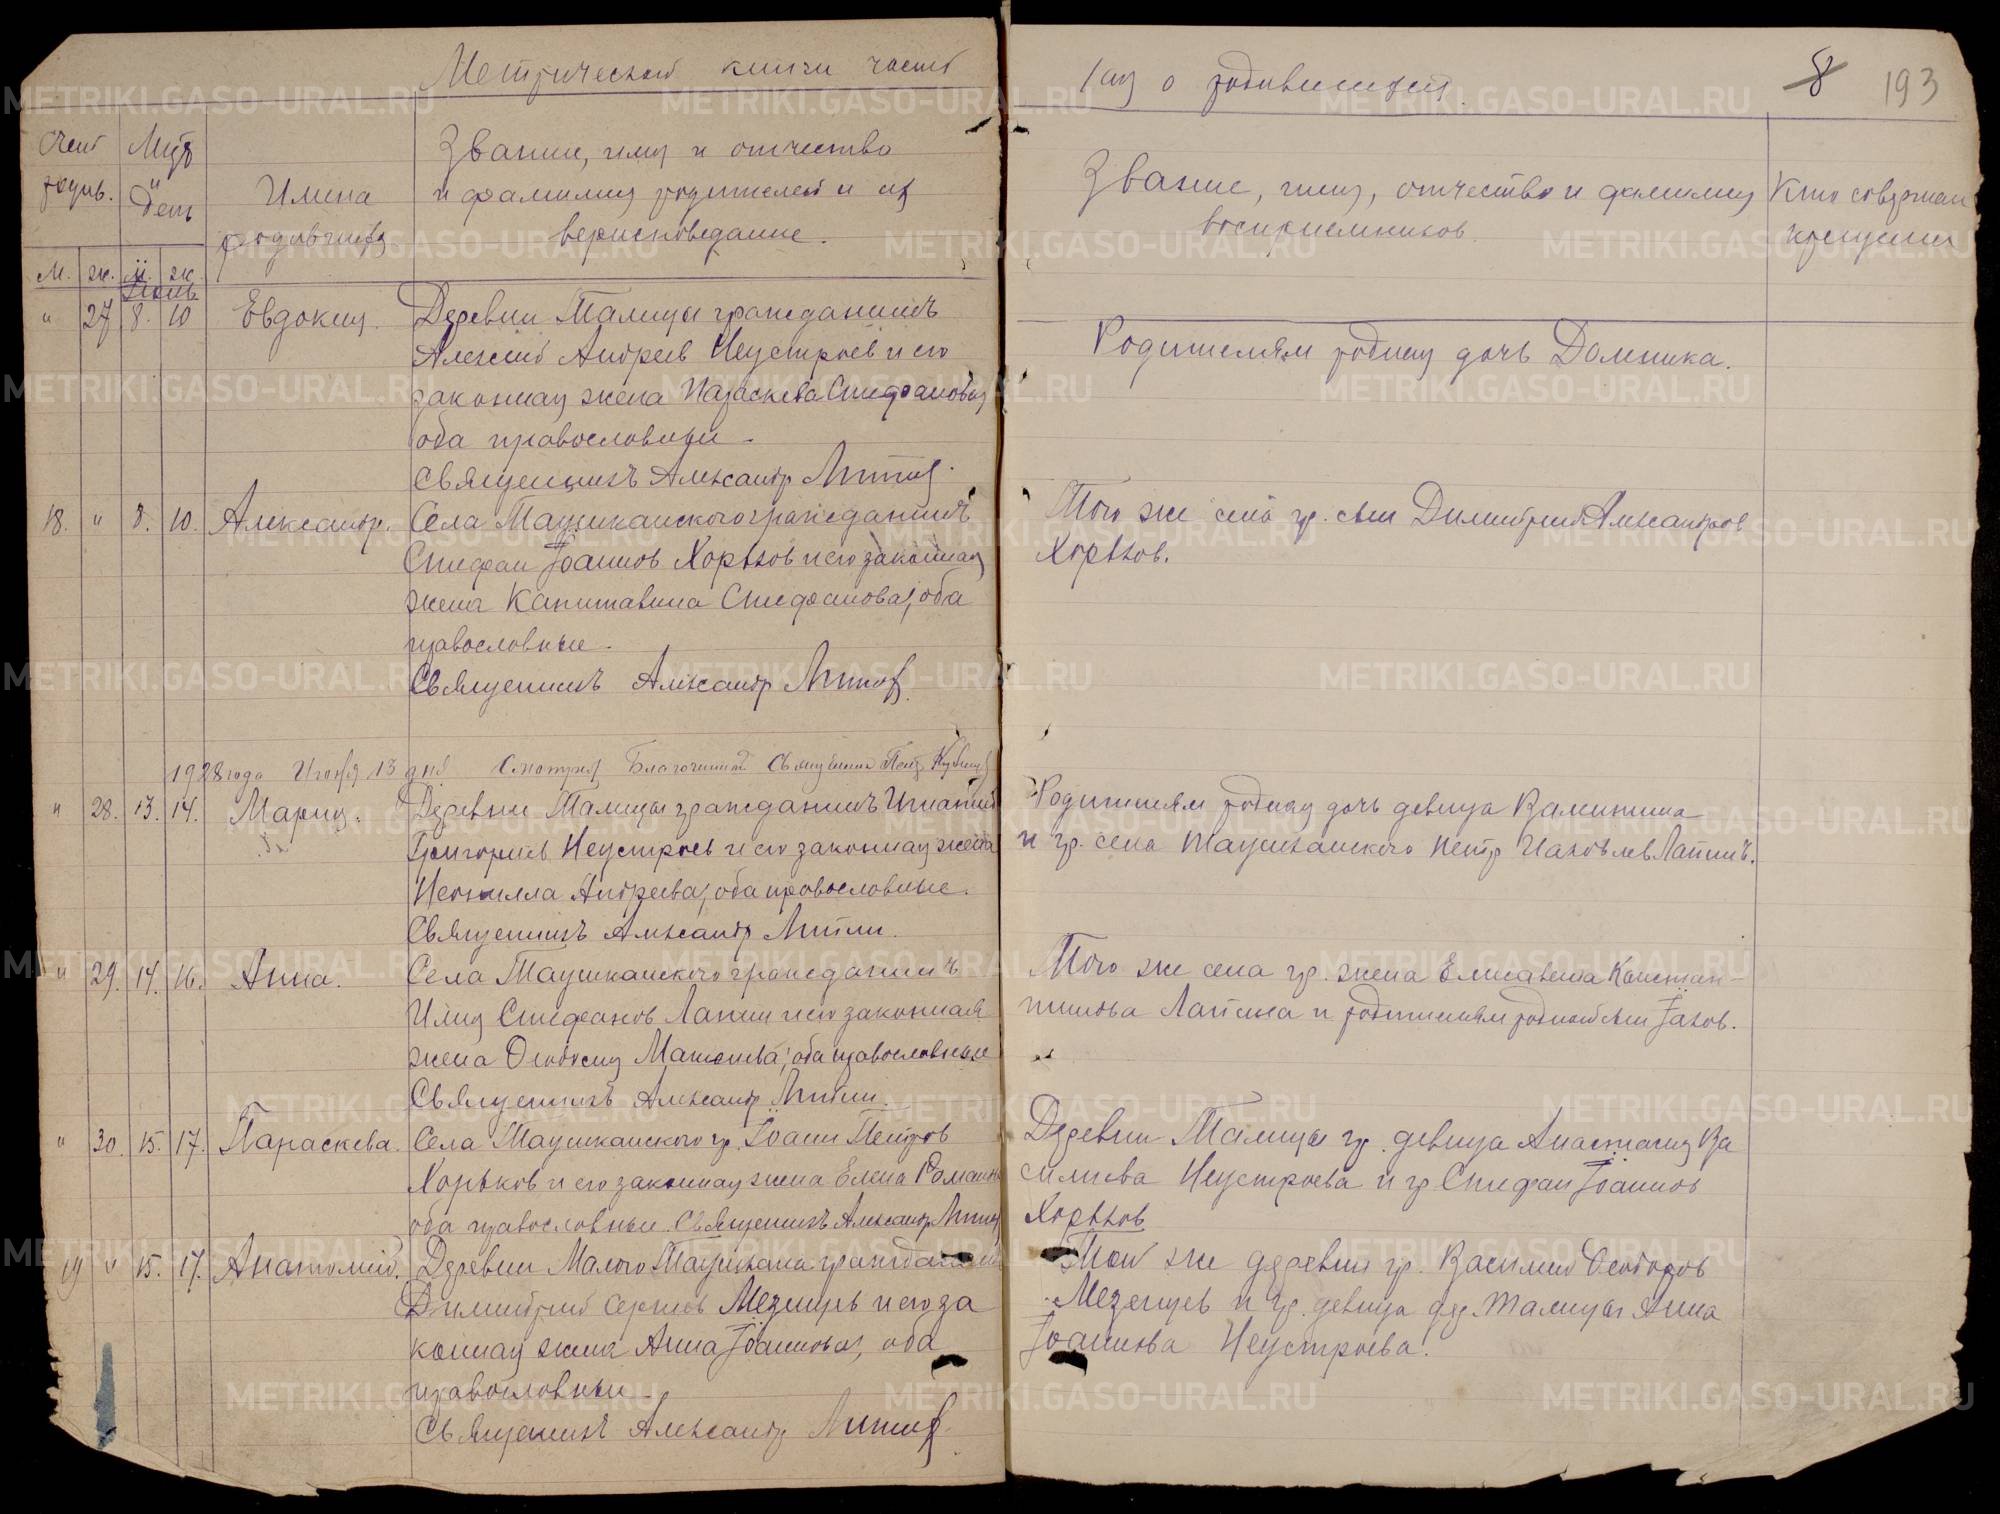 Метрической книги часть
1ая о родившихся
8 193
Счет родив.
Мцъ и день
Имена родившихся
Звание, имя и отчество
и фамилия родителей и их
вероисповедание.
Звание, имя, отчество и фамилия
восприемников
Кто совершал
крещение
м. ж. м. ж.
Июнь
" 27 8. 10 Евдокия. Деревни Талицы гражданинъ
Алексий Андреев Неустроев и его
законная жена Параскева Стефановна
оба православныи.
Священникъ Александр
Родителям родная дочь Домника.
18. " 8. 10. Александр. Села Таушканского гражданинъ
Стефан Іоаннов Хорьков и его законная
жена Капитавина Стефанова, оба
православные.
Священникъ Александр
Того же села гр. сын Димитрий Александров
Хорьков.
1928 года Июня 13 дня Смотрел Благочинный Священник Петр
" 28. 13. 14. Мария. Деревни Талицы гражданинъ Игнатий
Григориев Неустроев и его законная жена
Неонилла Андреева, оба православные.
Священникъ Александр
Родителям родная дочь девица Валентина
и гр. села Таушканского Петр Иаковлев Лапинъ.
" 29. 14. 16. Анна. Села Таушканского гражданинъ
Илия Стефанов Лапин и его законная
жена Феодосия Матфиева, оба православные
Священникъ Александр
Того же села гр. жена Елисавета Констан-
тинова Лапина и родителям родной сын Іаков.
" 30. 15. 17. Параскева. Села Таушканского гр. Іоанн Петров
Хорьков и его законная жена Елена Романов
оба православныи. Священникъ Александр
Деревни Талицы гр. девица Анастасия Ва
силиева Неустроева и гр Стефан Іоаннов
Хорьков
19 " 15. 17. Анатолий. Деревни Малого Таушкана гражданин
Димитрий Сергиев Мезенцев и его за
конная жена Анна Іоаннова, оба
православныи.
Священникъ Александр
Той же деревни гр. Василий Феодоров
Мезенцев и гр. девица дер. Талицы Анна
Іоаннова Неустроева.
METRIKI.GASO-URAL.RU